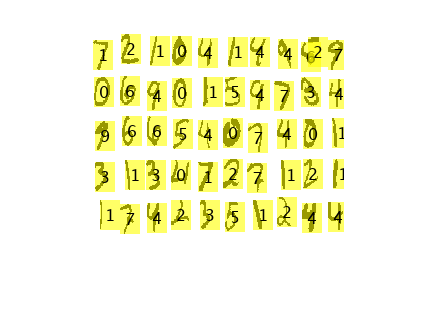 1 2 1 0 4 1 4 4 6 2 7
0 6 4 0 1 5 4 7 3 4
9 6 6 5 4 0 7 4 0 1
3 1 3 0 1 2 7 1 2 1
1 7 4 2 3 5 1 2 4 4